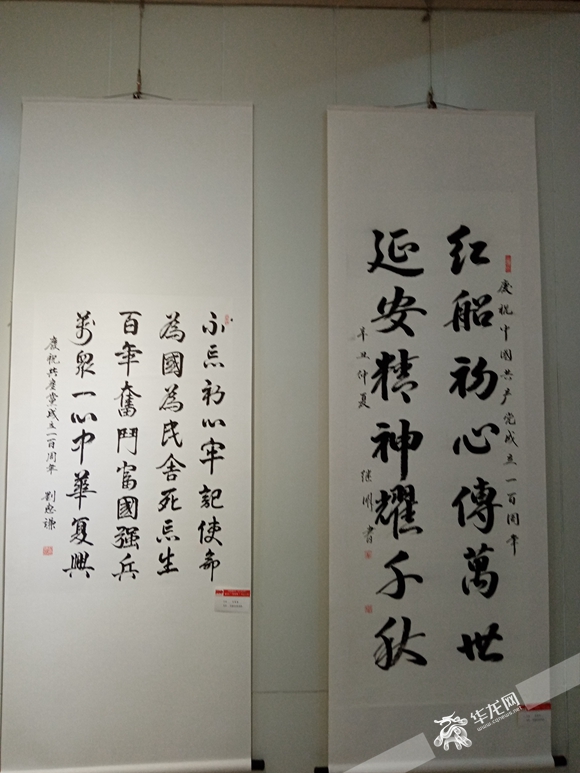 慶祝中國共产党成立一百周年
红船初心傳萬世
延安精神耀千秋
辛丑仲夏 继刚書
不忘初心牢記使命
為國為民舍死忘生
百年奮鬥富國强兵
萬衆一心中華复興
慶祝共產黨成立一百周年 劉惠謙
华龙网
www.cqnews.net